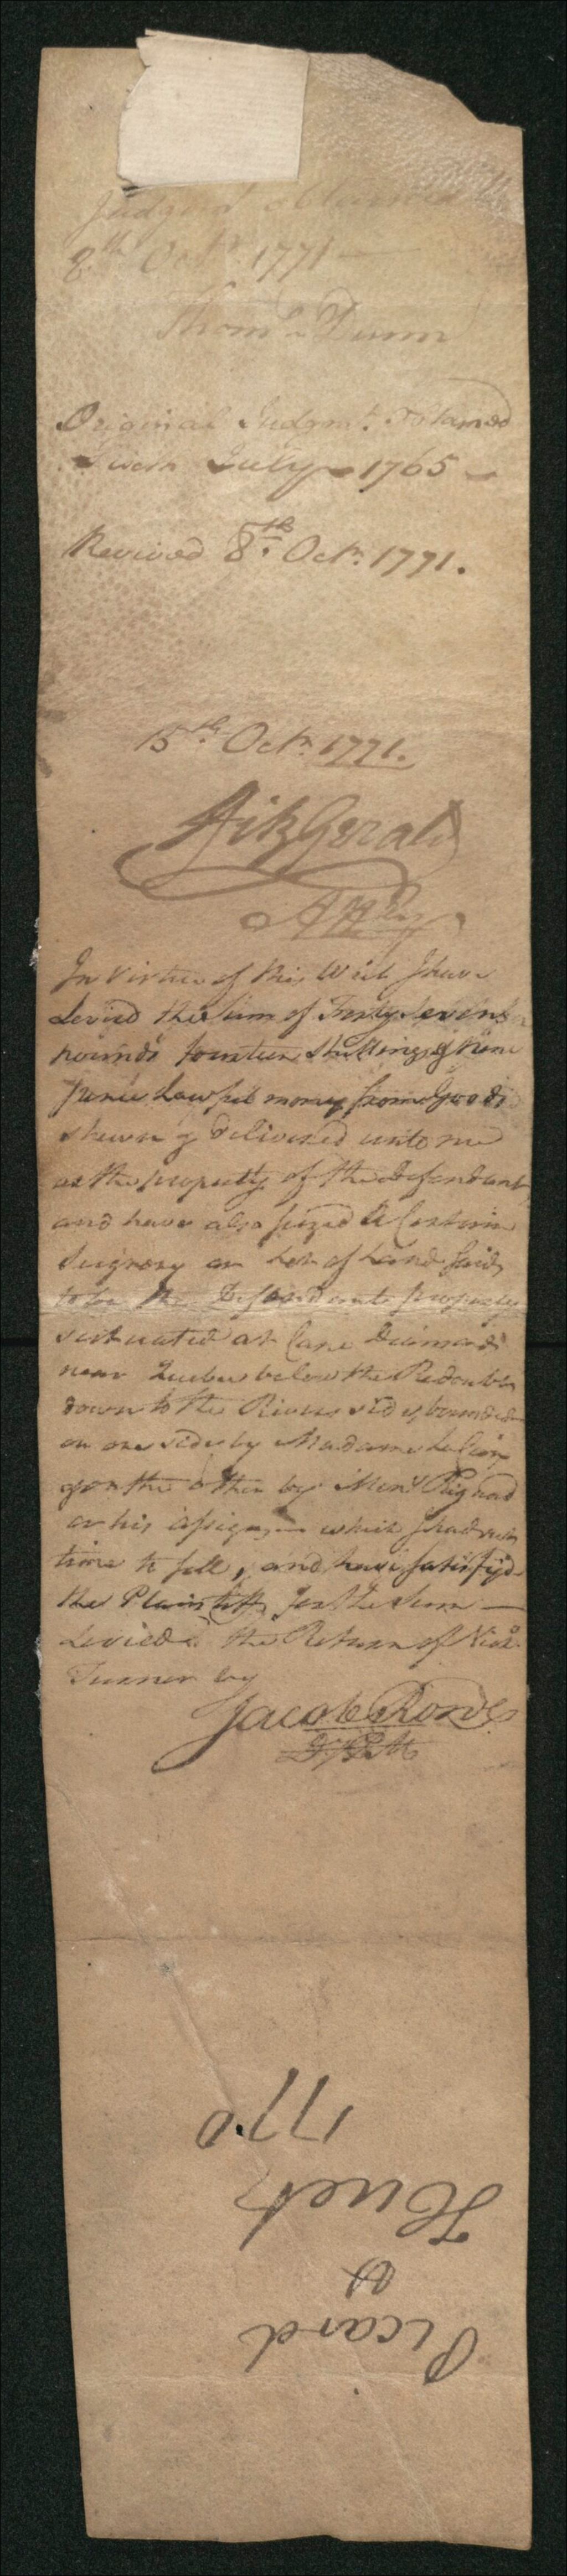 Judgmt obtained
8th Octr. 1771 —
Thoms Dunn
Original Judgmt. obtained
Given July 1765 —
Revived 8th. Octr. 1771.
15th. Octr. 1771.
FitzGerald
Atty.
In Virtue of this Writ I have
Levied the sum of Forty seven
pounds fourteen shillings & nine
pence Lawful money from goods
shewn & delivered unto me
as the property of the Defendant,
and have also seized a Certain
Seigrory or Lot of Land said
to be the Defendants property
scituated at Cape Diamond
near Quebec below the Redoubt
down to the River side, bounded
on one side by Madame
& on the other by Monr.
or his assigns — which I had not
time to sell, and have satisfyd
the Plaintiff for the Sum —
Levied. the Return of Nics.
Turner by
Jacob Rowe
D. P. M
Picard
vs
Huet
1770